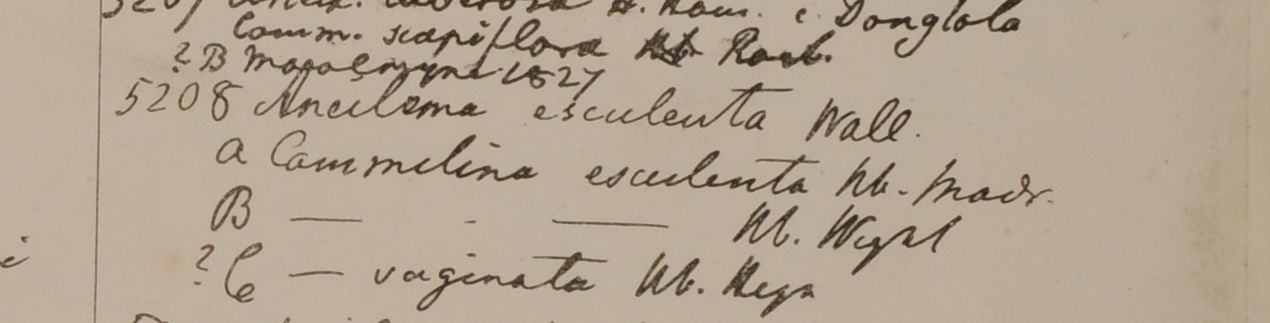 5207 Aneil. tuberosa H. Ham. e Donglola
Comm. scapiflora Hb Roxb.
? B 1827
5208 Aneilema esculenta Wall.
a Commelina esculenta Hb. Madr.
B — - — Hb. Wight
? C — vaginata Hb. Heyn